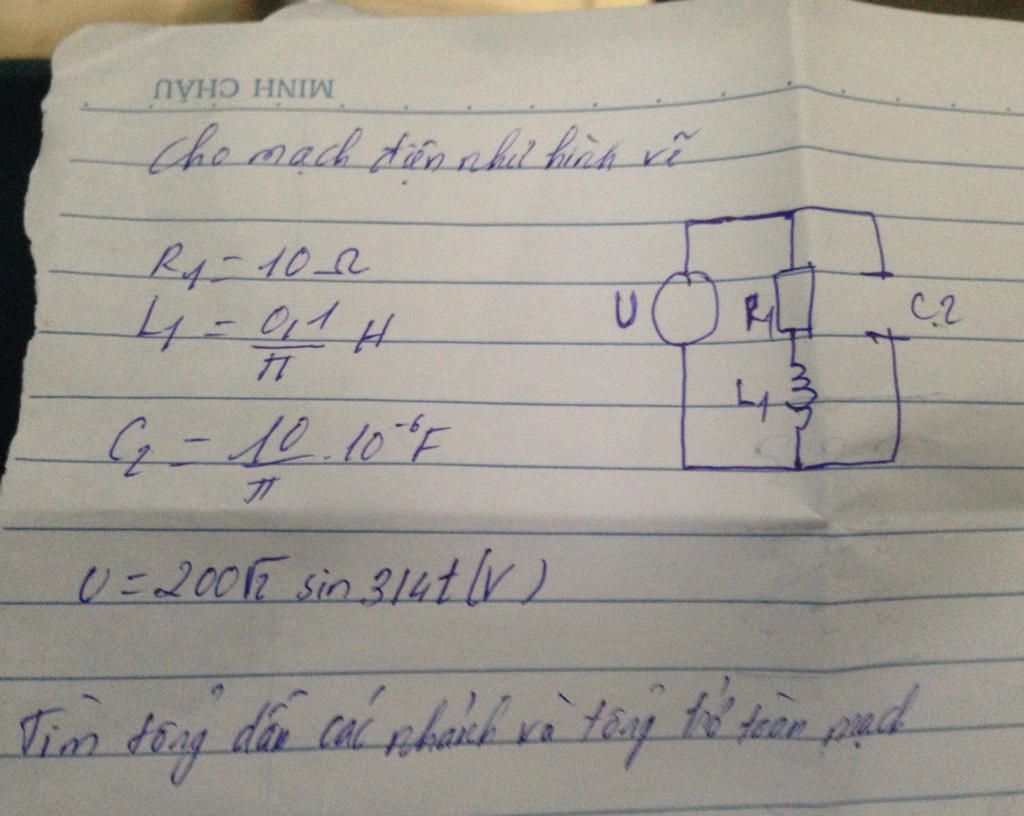 MINH CHÂU
Cho mạch điện như hình vẽ
R1 = 10 Ω
L1 = 0,1/π H
C2 = 10/π . 10^-6 F
U
R1
C2
L1
U = 200√2 sin 314t (V)
Tìm tổng dẫn các nhánh và tổng trở toàn mạch